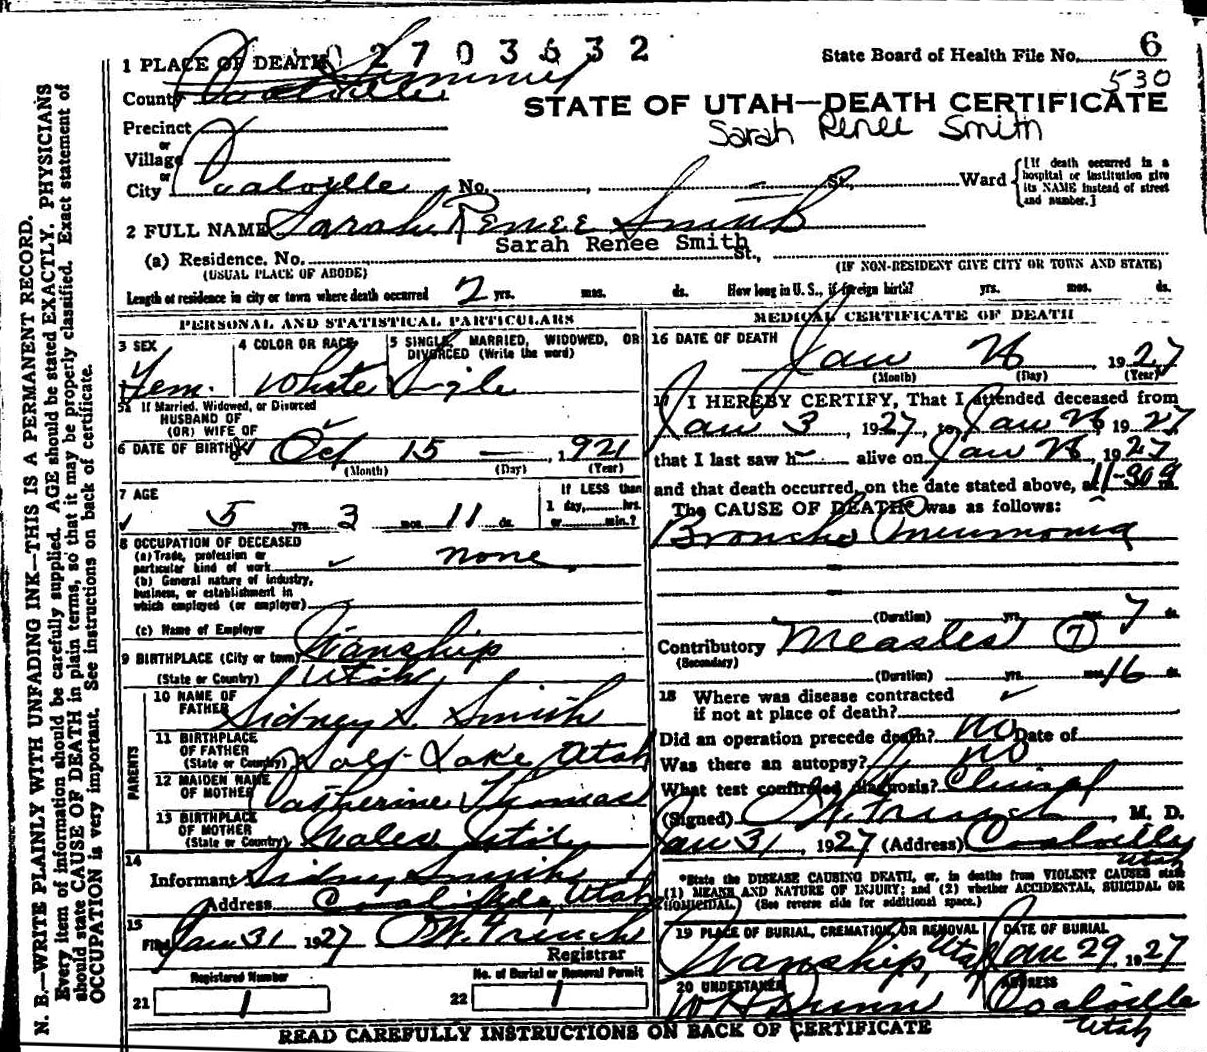 N. B.—WRITE PLAINLY WITH UNFADING INK—THIS IS A PERMANENT RECORD.
Every item of information should be carefully supplied. AGE should be stated EXACTLY. PHYSICIANS
should state CAUSE OF DEATH in plain terms, so that it may be properly classified. Exact statement of
OCCUPATION is very important. See instructions on back of certificate.
2703632
State Board of Health File No. 6
530
1 PLACE OF DEATH Summit
County Coalville
STATE OF UTAH—DEATH CERTIFICATE
Sarah Renee Smith
Precinct
or
Village
or
City Coalville No. , St., Ward
[If death occurred in a
hospital or institution give
its NAME instead of street
and number.]
2 FULL NAME Sarah Renee Smith
Sarah Renee Smith
(a) Residence. No. St.,
(USUAL PLACE OF ABODE) (IF NON-RESIDENT GIVE CITY OR TOWN AND STATE)
Length of residence in city or town where death occurred 2 yrs. mos. ds. How long in U. S., if foreign birth? yrs. mos. ds.
PERSONAL AND STATISTICAL PARTICULARS
3 SEX 4 COLOR OR RACE 5 SINGLE, MARRIED, WIDOWED, OR
DIVORCED (Write the word)
Fem. White Single
5a If Married, Widowed, or Divorced
HUSBAND OF
(OR) WIFE OF
6 DATE OF BIRTH Oct 15 — 1921
(Month) (Day) (Year)
7 AGE If LESS than
1 day, hrs.
5 yrs. 3 mos. 11 ds. or min.?
8 OCCUPATION OF DECEASED
(a) Trade, profession or
particular kind of work none
(b) General nature of industry,
business, or establishment in
which employed (or employer)
(c) Name of Employer
9 BIRTHPLACE (City or town) Wanship
(State or Country) Utah
PARENTS
10 NAME OF
FATHER Sidney S. Smith
11 BIRTHPLACE
OF FATHER
(State or Country) Salt Lake Utah
12 MAIDEN NAME
OF MOTHER Catherine Thomas
13 BIRTHPLACE
OF MOTHER
(State or Country) Wales Utah
14
Informant Sidney Smith
Address Coalville, Utah
15
Filed Jan 31 1927 O.W. French
Registrar
Registered Number No. of Burial or Removal Permit
21 1 22 1
MEDICAL CERTIFICATE OF DEATH
16 DATE OF DEATH
Jan 26 1927
(Month) (Day) (Year)
17 I HEREBY CERTIFY, That I attended deceased from
Jan 3, 1927, to Jan 26, 1927
that I last saw h alive on Jan 26, 1927
and that death occurred, on the date stated above, at 11-30 a m.
The CAUSE OF DEATH was as follows:
Broncho Pneumonia
(Duration) yrs. mos. 7 ds.
Contributory Measles 7
(Secondary)
(Duration) yrs. mos. 16 ds.
18 Where was disease contracted
if not at place of death?
Did an operation precede death? no Date of
Was there an autopsy? no
What test confirmed diagnosis? Clinical
(Signed) O.W. French, M. D.
Jan 31, 1927 (Address) Coalville
Utah
*State the DISEASE CAUSING DEATH, or, in deaths from VIOLENT CAUSES state
(1) MEANS AND NATURE OF INJURY; and (2) whether ACCIDENTAL, SUICIDAL OR
HOMICIDAL. (See reverse side for additional space.)
19 PLACE OF BURIAL, CREMATION, OR REMOVAL DATE OF BURIAL
Wanship, Utah Jan 29, 1927
20 UNDERTAKER ADDRESS
W H Dunn Coalville
Utah
READ CAREFULLY INSTRUCTIONS ON BACK OF CERTIFICATE